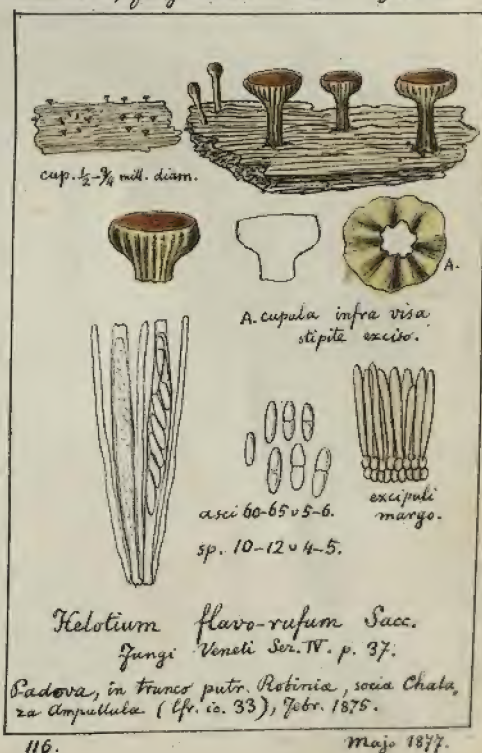 cup. ½-¾ mill. diam.
A.
A. cupula infra visa
stipite exciso.
asci 60-65 v 5-6.
sp. 10-12 v 4-5.
excipuli
margo.
Helotium flavo-rufum Sacc.
Fungi Veneti Ser. IV. p. 37.
Padova, in trunco putr. Robiniæ, socia Chala,
ra Ampullula (Cfr. ic. 33), Febr. 1875.
116.
Majo 1877.